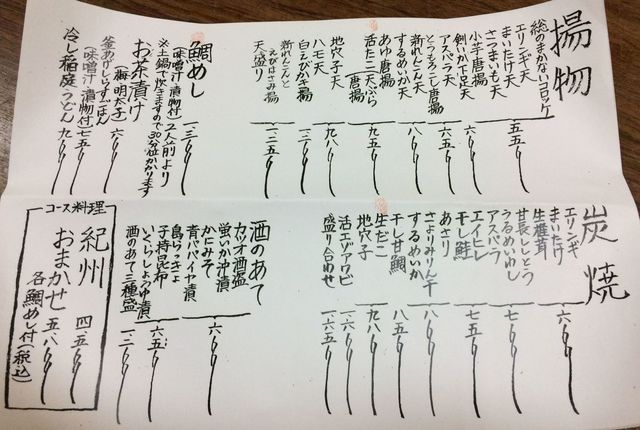 揚物
総のまかないコロッケ
エリンギ天
まいたけ天
さつまいも天
五五〇
小芋唐揚
剣いか下足天
六〇〇
アスパラ天
とうもろこし唐揚
六五〇
新れんこん天
するめいか天
八〇〇
あゆ唐揚
活たこ天ぷら
唐揚
九五〇
地穴子天
ハモ天
九八〇
白えびかき揚
一一〇〇
新れんこんと
えびはさみ揚
天盛り
一二五〇
鯛めし
(味噌汁 漬物付)二人前より
一三〇〇
※土鍋で炊きますので30分位かかります
お茶漬け
(梅 明太子)
六〇〇
釜あげしらすごはん
(味噌汁 漬物付)
七五〇
冷し稲庭うどん
九〇〇
炭焼
エリンギ
まいたけ
生椎茸
六〇〇
甘長ししとう
うるめいわし
アスパラ
七〇〇
エイヒレ
干し鮭
七五〇
あさり
さよりみりん干
八〇〇
するめいか
干し甘鯛
八五〇
生だこ
地穴子
九八〇
活エゾアワビ
一二六〇
盛り合わせ
一六五〇
酒のあて
カツオ酒盗
蛍いか沖漬
かにみそ
六〇〇
青パパイヤ漬
島らっきょ
子持昆布
いくらしょうゆ漬
六五〇
酒のあて三種盛
一二〇〇
コース料理
紀州
四、五〇〇
おまかせ
五、八〇〇
各鯛めし付(税込)